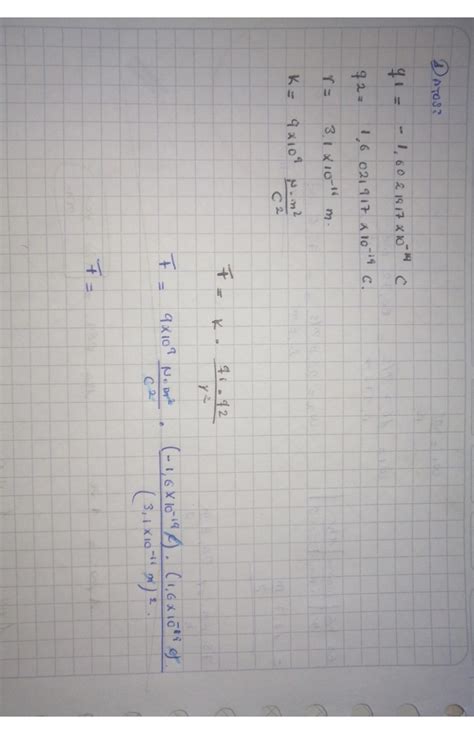 1) Datos:
q1 = -1,6021917 x 10^-19 C
q2 = 1,6021917 x 10^-19 C.
r = 3,1 x 10^-11 m.
K = 9 x 10^9 N·m²/C²
F = K · q1·q2 / r²
F = 9 x 10^9 N·m²/C² · (-1,6 x 10^-19 C) · (1,6 x 10^-19 C) / (3,1 x 10^-11 m)².
F =